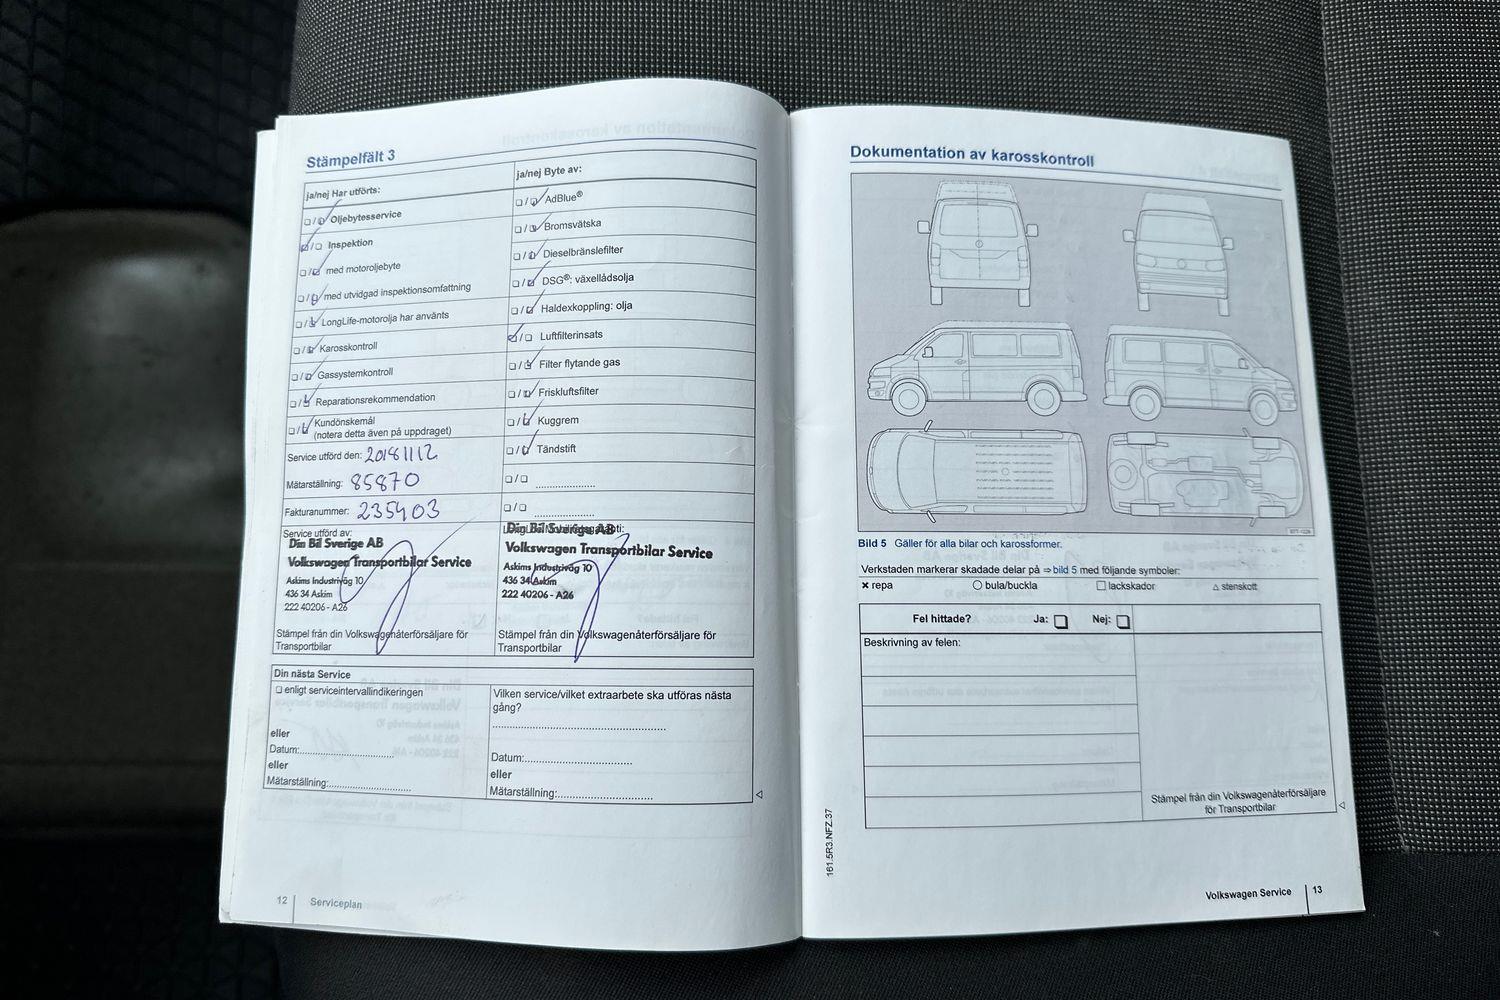 Stämpelfält 3
ja/nej Har utförts:
☐/☑ Oljebytesservice
☑/☐ Inspektion
☐/☑ med motoroljebyte
☐/☑ med utvidgad inspektionsomfattning
☐/☑ LongLife-motorolja har använts
☐/☑ Karosskontroll
☐/☑ Gassystemkontroll
☐/☑ Reparationsrekommendation
☐/☑ Kundönskemål
(notera detta även på uppdraget)
Service utförd den: 20181112
Mätarställning: 85870
Fakturanummer: 235403
Service utförd av:
Din Bil Sverige AB
Volkswagen Transportbilar Service
Askims Industriväg 10
436 34 Askim
222 40206 - A26
Stämpel från din Volkswagenåterförsäljare för
Transportbilar
ja/nej Byte av:
☐/☑ AdBlue®
☐/☑ Bromsvätska
☐/☑ Dieselbränslefilter
☐/☑ DSG®: växellådsolja
☐/☑ Haldexkoppling: olja
☑/☐ Luftfilterinsats
☐/☑ Filter flytande gas
☐/☑ Friskluftsfilter
☐/☑ Kuggrem
☐/☑ Tändstift
☐/☐ ......................
☐/☐ ......................
Din Bil Sverige AB
Volkswagen Transportbilar Service
Askims Industriväg 10
436 34 Askim
222 40206 - A26
Stämpel från din Volkswagenåterförsäljare för
Transportbilar
Din nästa Service
☐ enligt serviceintervallindikeringen
eller
Datum:..............................
eller
Mätarställning:..........................
Vilken service/vilket extraarbete ska utföras nästa
gång?
Datum:..............................
eller
Mätarställning:..........................
12 Serviceplan
Dokumentation av karosskontroll
Bild 5 Gäller för alla bilar och karossformer.
Verkstaden markerar skadade delar på ⇒ bild 5 med följande symboler:
× repa ○ bula/buckla ☐ lackskador △ stenskott
Fel hittade? Ja: ☐ Nej: ☐
Beskrivning av felen:
Stämpel från din Volkswagenåterförsäljare
för Transportbilar
161.5R3.NFZ.37
Volkswagen Service 13